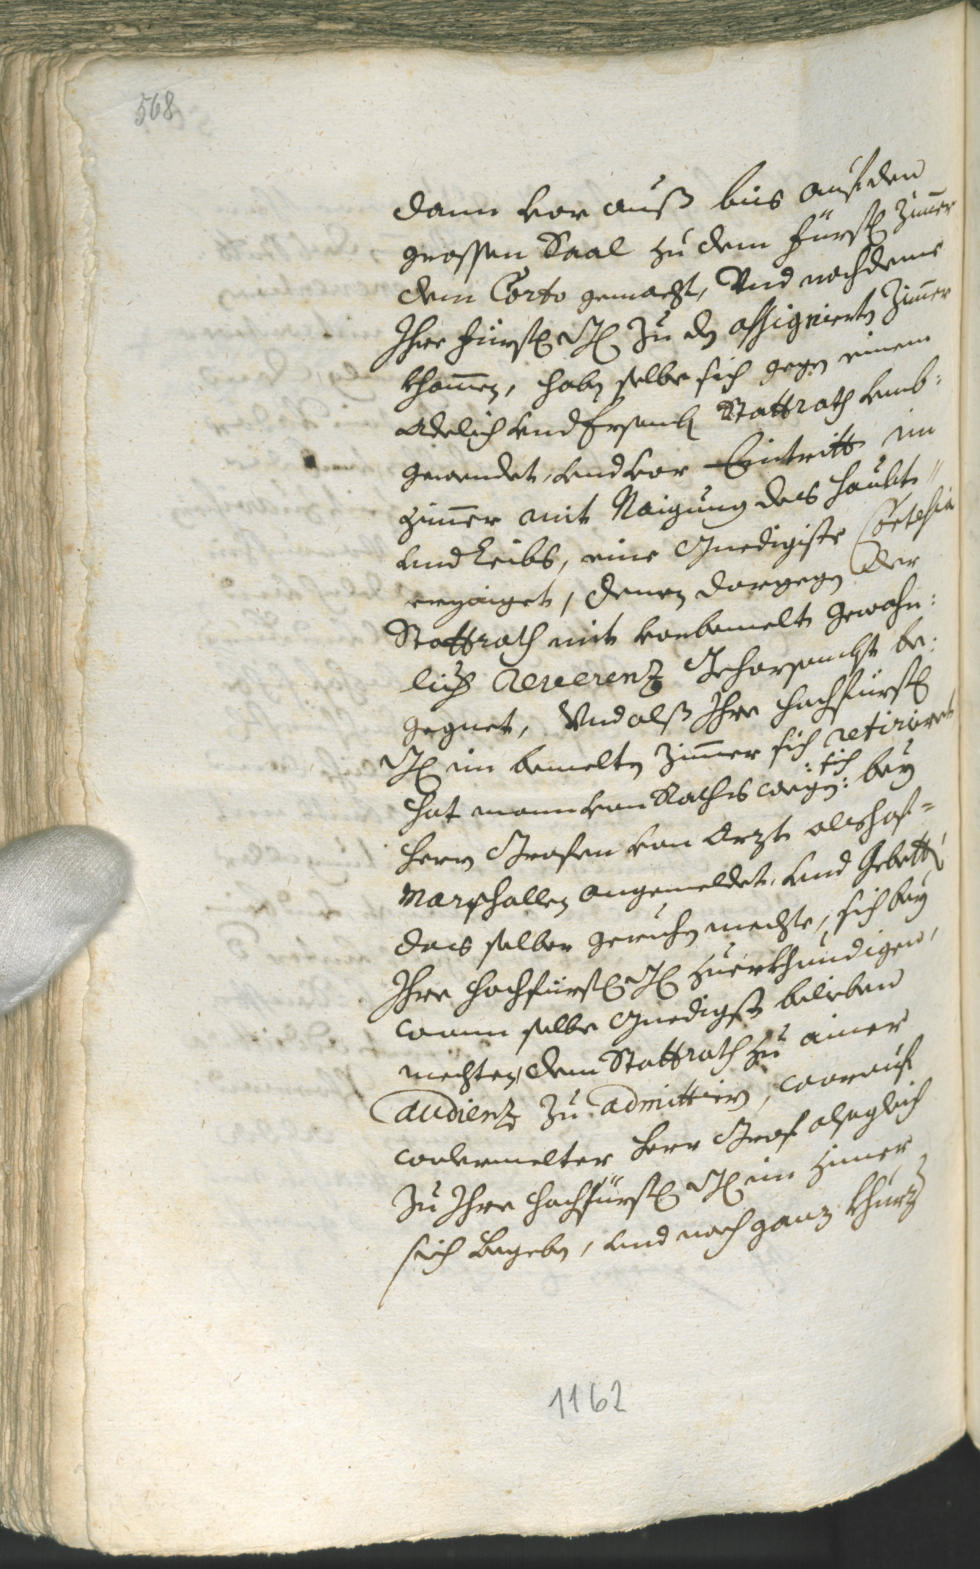 568
dann voraus bis auf den
grossen Saal zu dem fürstl Zimer
dem Corto gemacht, Und nachdeme
Ihre fürstl Gl zu dn assignierten Zimer
khomen, habn selbe sich gegn einem
Adelich und Ersamb Stattrath umb=
gewendet, und vor Eintritt im
zimer mit Naigung des haubts
und Leibs, eine Gnedigiste Cortesia
erzaiget, denen dargegen der
Stattrath mit vorbemelt gewohn=
lich Reverenz Gehorsambst be=
gegnet, Und alss Ihre hochfürstl
Gl im bemelten Zimer sich retiriret
hat mann von Raths wegn :sich: bey
herrn Grafen von Arzt als hof=
Marschallen angemeldet, und Gebetten
das selber geruhen mechte, sich bey
Ihre hochfürstl Gl zuerkhundigen,
wann selbe Gnedigst belieben
mechten, dem Stattrath zu ainer
Audienz zu admittirn, worauf
wolermelter Herr Graf alsogleich
zu Ihre hochfürstl Gl im zimer
sich begeben, und nach ganz khurz
1162